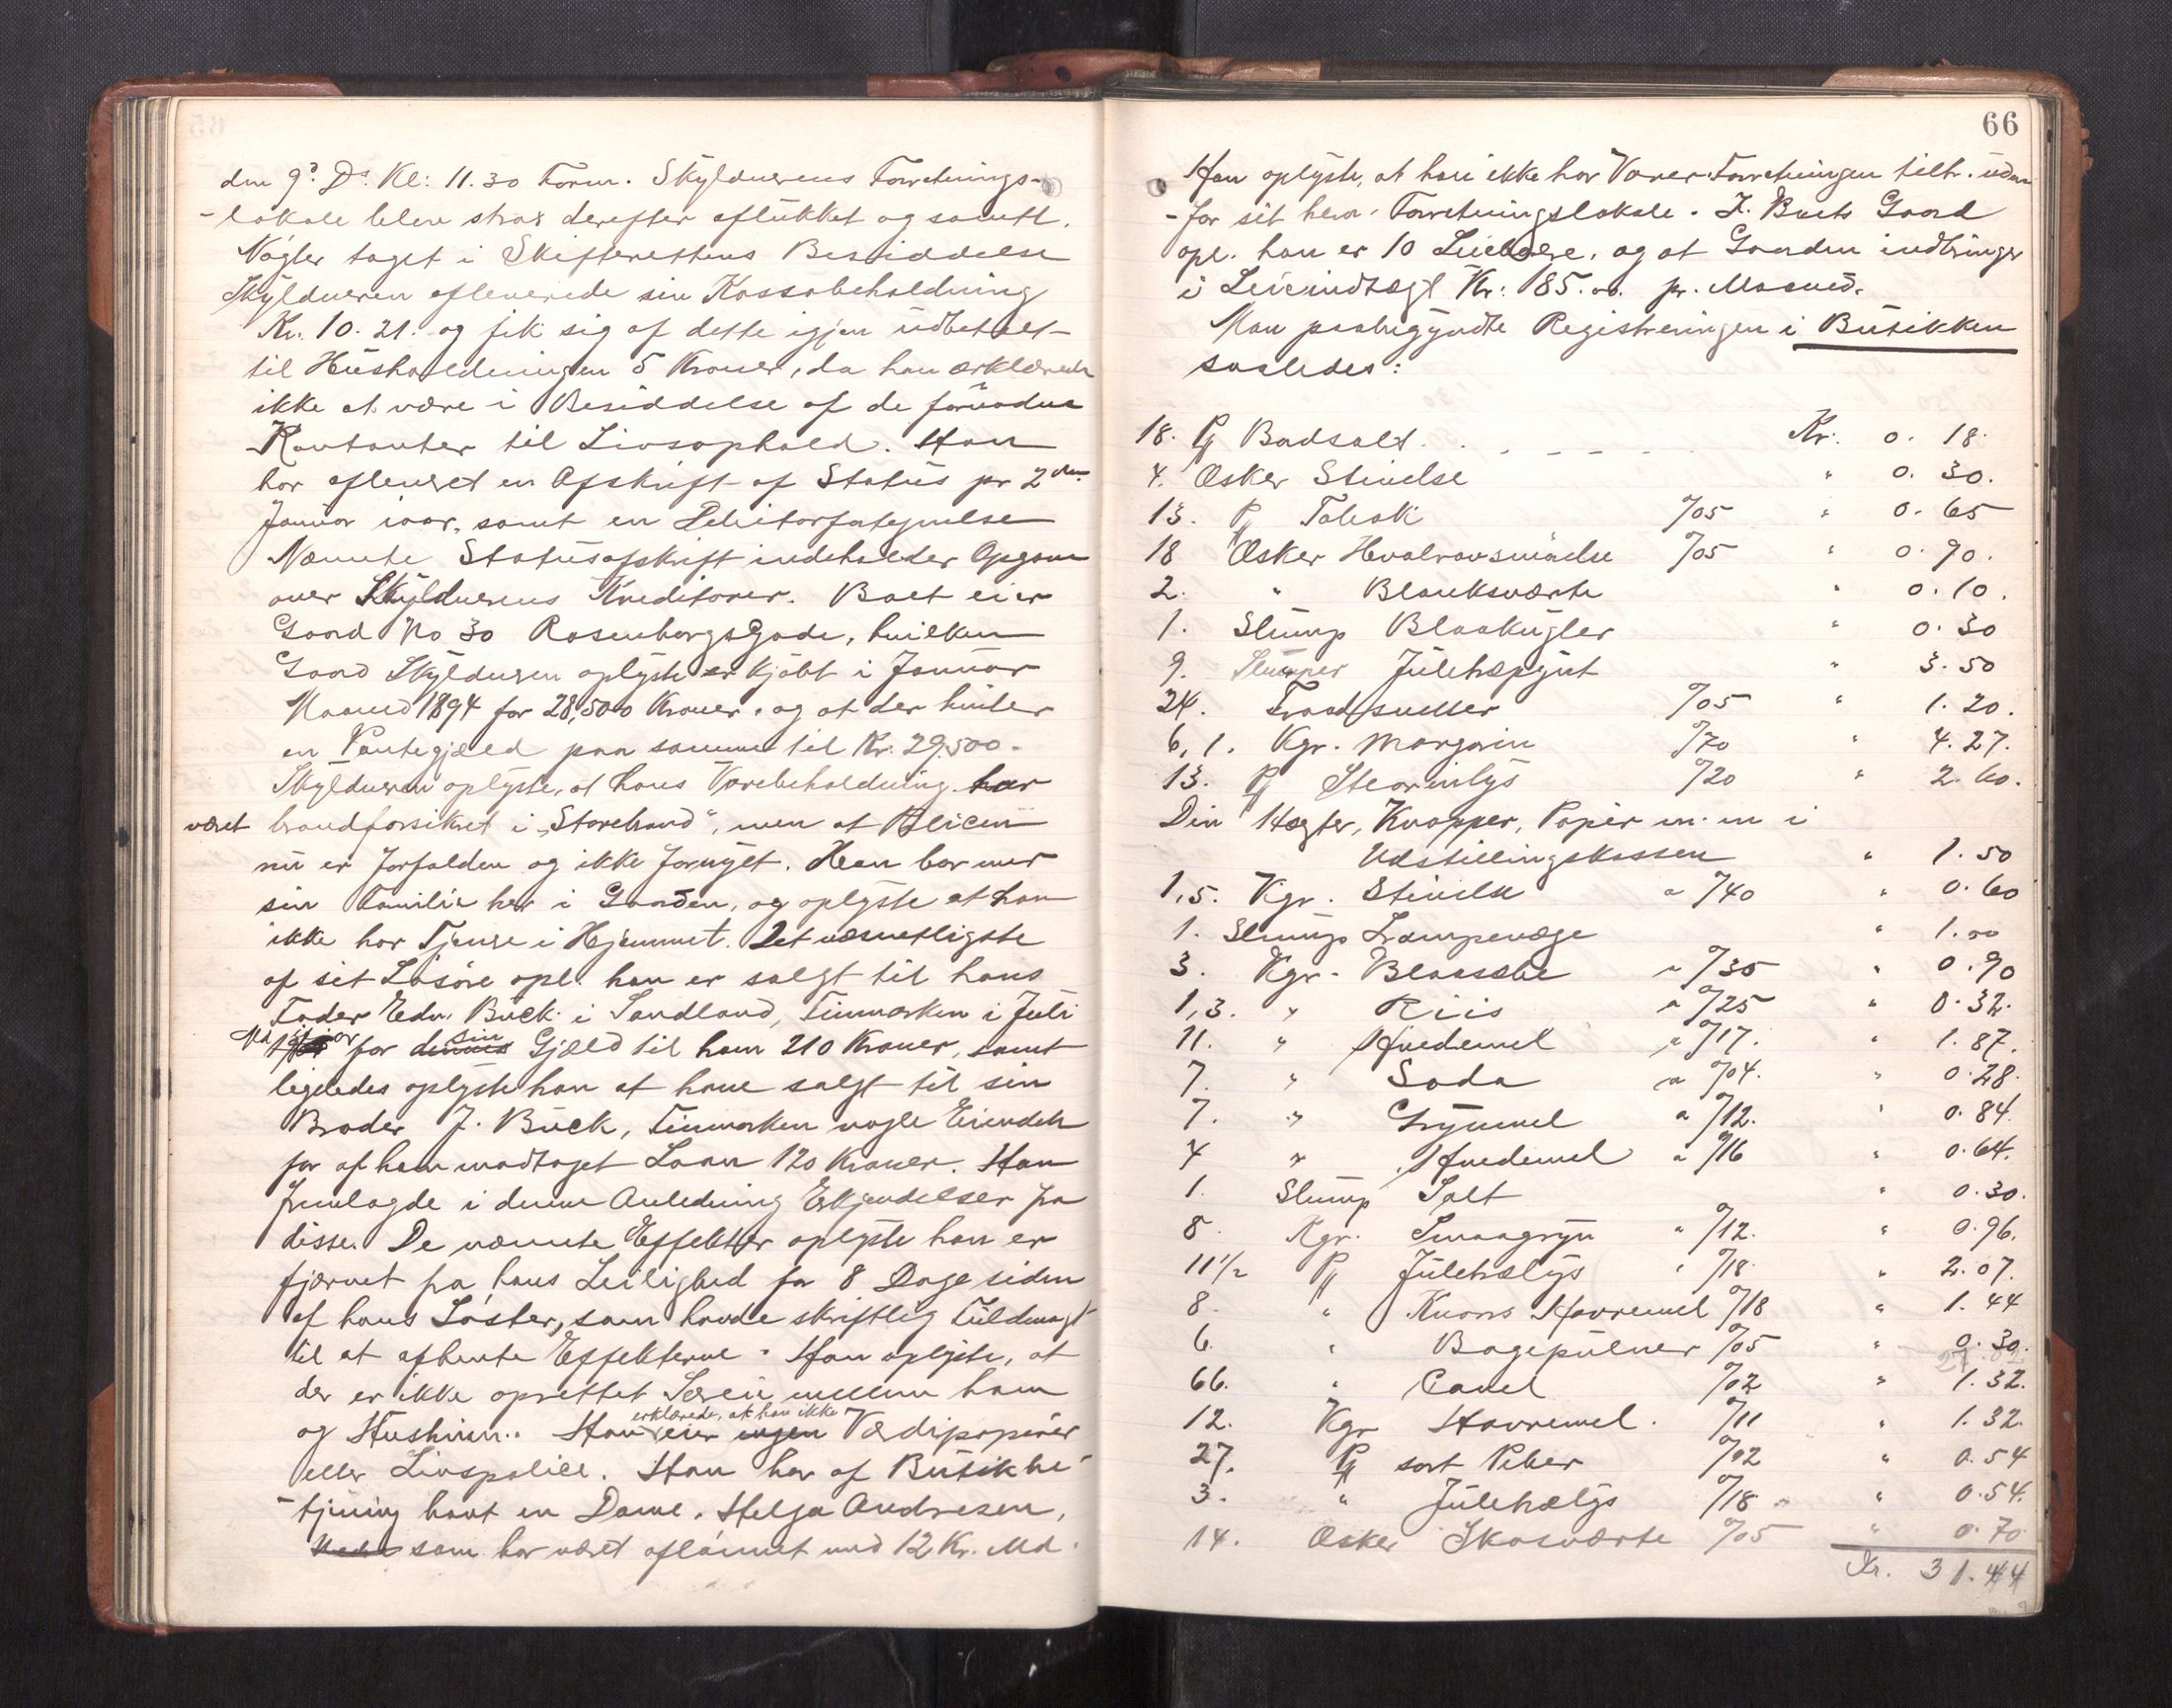 den 9? Ds. Kl: 11.30 Form. Skyldnerens Forretnings-
-lokale bleve strax derefter aflukket og samtl.
Nøgler taget i Skifterettens Besiddelse
Skyldneren afleverede sin Kassabeholdning
Kr. 10.21. og fik sig af dette igjen udbetalt
til Husholdningen 5 Kroner, da han erklærede
ikke at være i Besiddelse af de fornødne
Kontanter til Livsophold. Han
har afleveret en Afskrift af Status pr 2den
Januar iaar, samt en Debitorfortegnelse
Nævnte Statusafskrift indeholder Opgave
over Skyldnerens Kreditorer. Boet eier
Gaard No 30 Rosenborgsgade, hvilken
Gaard Skyldneren oplyste er kjøbt i Januar
Maaned 1894 for 28,500 Kroner. og at der hviler
en Pantegjæld paa samme til Kr. 29.500.
Skyldneren oplyste, at hans Varebeholdning har
været brandforsikret i „Storebrand", men at Policen
nu er forfalden og ikke fornyet. Han bor med
sin Familie her i Gaarden, og oplyste at han
ikke har Tjener i Hjemmet. Det væsentligste
af sit Løsøre opl. han er salgt til hans
Fader Edv. Buck i Sandland, Finmarken i Juli
Md iaar for dennes sin Gjæld til ham 210 Kroner, samt
ligeledes oplyste han at have salgt til sin
Broder J. Buck, Finmarken nogle Eiendele
for af ham modtaget Laan 120 Kroner. Han
fremlagde i denne Anledning Erkjendelser fra
disse. De nævnte Effekter oplyste han er
fjernet fra hans Leilighed for 8 Dage siden
af hans Søster, som havde skriftlig Fuldmagt
til at afhente Effekterne. Han oplyste, at
der er ikke oprettet Særeie mellem ham
erklærede, at han ikke
og Hustruen. Han eier ingen Værdipapirer
eller Livspolice. Han har af Butikbe-
-tjening havt en Dame. Helga Andresen,
som har været aflønnet med 12 Kr. Md.
66
Han oplyste, at han ikke har Varer Forretningen tilh. uden-
-for sit herv. Forretningslokale. I Boets Gaard
opl. han er 10 Leieboere, og at Gaarden indbringer
i Leieindtægt Kr: 85.00. pr. Maaned.
Man paabegyndte Registreringen i Butikken
saaledes:
18. Pk Badsalt. . . - - - - Kr: 0. 18.
4. Æsker Stivelse " 0. 30.
13. Pk Tobak %05 " 0. 65
18 Æsker Hvalravsmølse %05 " 0. 90.
2. " Blanksværte " 0. 10.
1. Slump Blaakugler " 0. 30
9. Slumper Juletræpynt " 3. 50
24. Traadsneller %05 " 1. 20.
6,1. Kgr. Margarin %70 " 4. 27.
13. Pk Stearinlys %20 " 2. 60.
Div Hægter, Knapper, Papir m. m i
Udstillingskassen " 1. 50
1,5. Kgr. Stivelse a %40 " 0. 60
1. Slump Lampevæge " 1. 00
3. Kgr. Blaasæbe a %35 " 0. 90
1,3. " Riis a %25 " 0. 32.
11. " Hvedemel a %17. " 1. 87.
7. " Soda a %04. " 0. 28.
7. " Grynmel a %12. " 0. 84.
4 " Hvedemel a %16 " 0. 64.
1. Slump Salt " 0. 30.
8. Kgr. Smaagryn " %12. " 0. 96.
11½ Pk Juletrælys " %18 " 2. 07.
8. " Knorrs Havremel %18 " 1. 44
6. " Bagepulver %05 " 0. 30.
66. " Canel %02 " 1. 32.
12. Kgr Havremel. %11 " 1. 32.
27. Pk sort Peber %02 " 0. 54
3. " Juletrælys %18 " 0. 54.
14. Æsker Skosværte %05 " 0. 70
Kr. 31.44